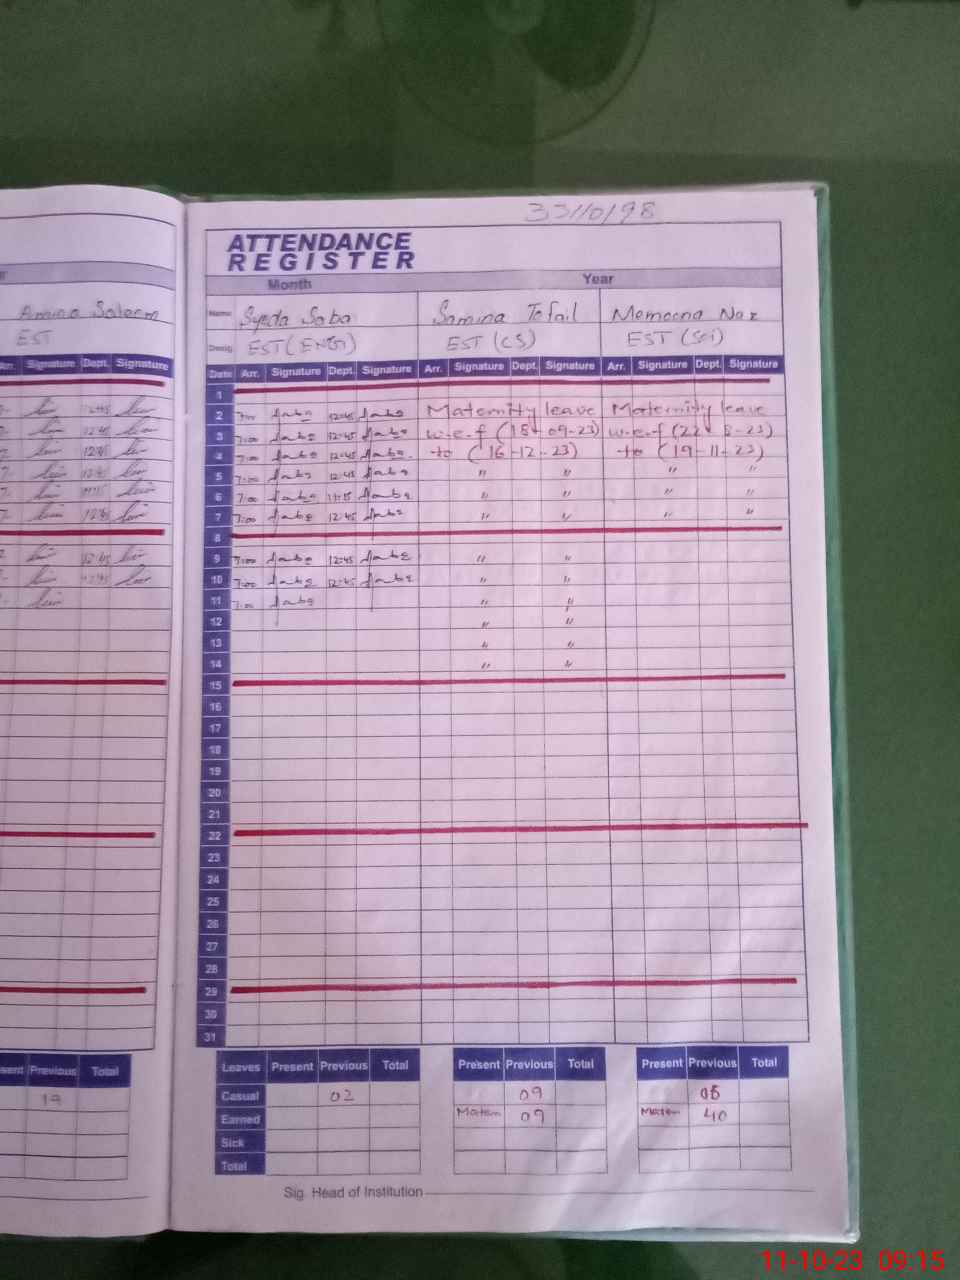 33110198
ATTENDANCE
REGISTER
Month Year
Name Syeda Saba Samina Tofail Memoona Naz
Desig. EST(ENG) EST (CS) EST (Sci)
Date Arr. Signature Dept. Signature Arr. Signature Dept. Signature Arr. Signature Dept. Signature
1
2 7:00 Saba 12:45 Saba Maternity leave Maternity leave
3 7:00 Saba 12:45 Saba w.e.f (18-09-23) w.e.f (22-8-23)
4 7:00 Saba 12:45 Saba to (16-12-23) to (19-11-23)
5 7:00 Saba 12:45 Saba " " " "
6 7:00 Saba 11:15 Saba " " " "
7 7:00 Saba 12:45 Saba " " " "
8
9 7:00 Saba 12:45 Saba " "
10 7:00 Saba 12:45 Saba " "
11 7:00 Saba " "
12 " "
13 " "
14 " "
15
16
17
18
19
20
21
22
23
24
25
26
27
28
29
30
31
Leaves Present Previous Total Present Previous Total Present Previous Total
Casual 02 09
Earned Matern 09 Matern 40
Sick
Total
Sig. Head of Institution
Amina Saleem
EST
Arr. Signature Dept. Signature
12:45
12:45
12:45
12:45
11:15
12:45
12:45
12:45
Previous Total
19
11-10-23 09:15